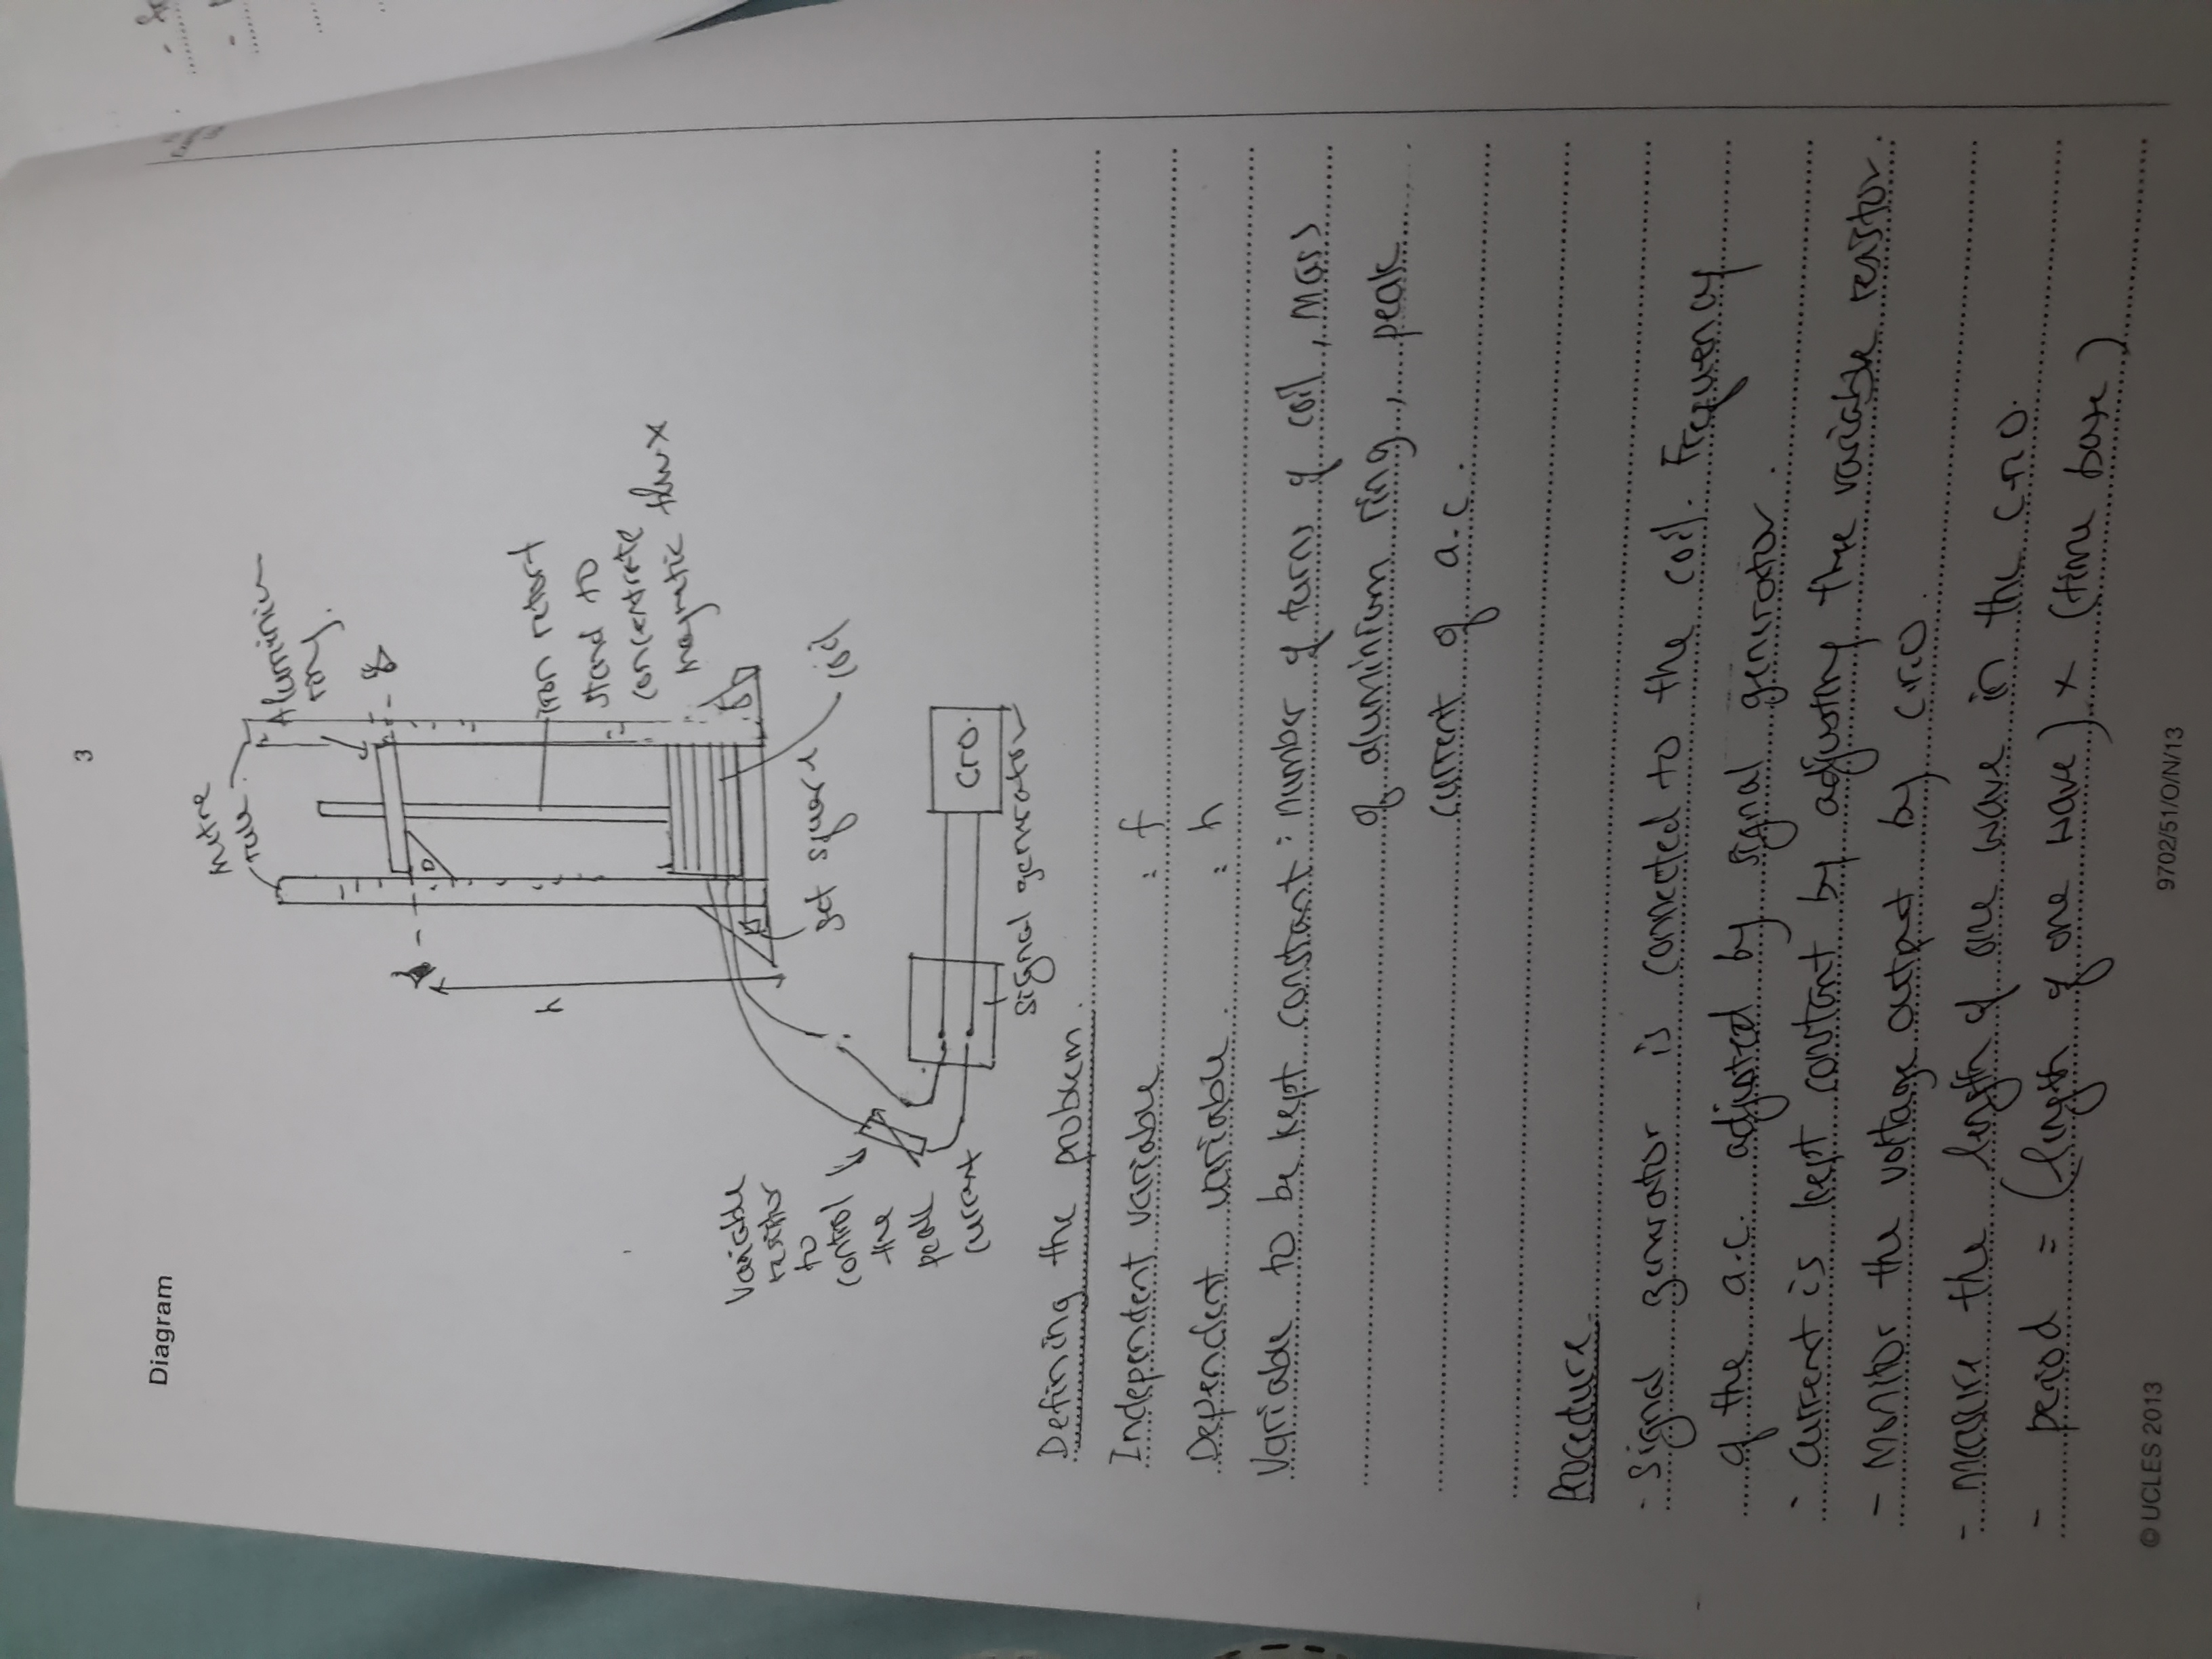 3
Diagram
metre
rule
Aluminium
ring.
h
iron retort
stand to
concentrate
magnetic flux
Variable
resistor
to
control
the
peak
current
set square
coil
cro.
signal generator
Defining the problem.
Independent variable : f
Dependent variable. : h
Variable to be kept constant: number of turns of coil, mass
of aluminium ring, peak
current of a.c.
Procedure
- signal generator is connected to the coil. Frequency
of the a.c. adjusted by signal generator.
- current is kept constant by adjusting the variable resistor.
- Monitor the voltage output by c.r.o.
- measure the length of one wave in the c.r.o.
- period = (length of one wave) x (time base)
© UCLES 2013
9702/51/O/N/13